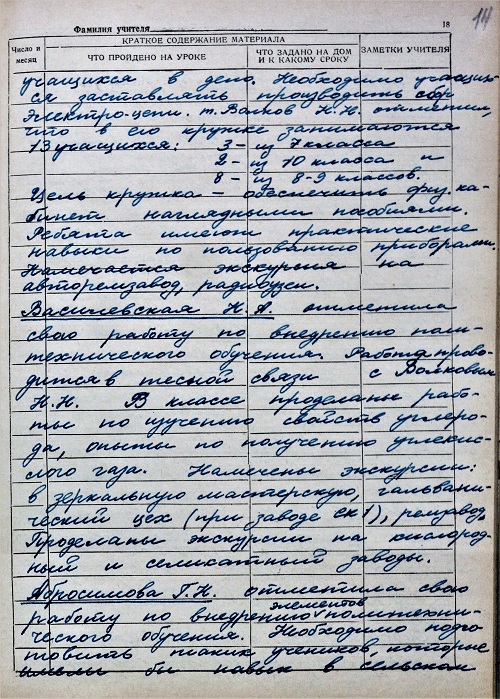 14
Фамилия учителя 18
Число и месяц
КРАТКОЕ СОДЕРЖАНИЕ МАТЕРИАЛА
ЧТО ПРОЙДЕНО НА УРОКЕ
ЧТО ЗАДАНО НА ДОМ И К КАКОМУ СРОКУ
ЗАМЕТКИ УЧИТЕЛЯ
учащихся в депо. Необходимо учащих-
ся заставлять производить сбор
электро-цепи. т. Волков Н.Н. отметил,
что в его кружке занимаются
13 учащихся: 3 – из 7 класса
2 – из 10 класса и
8 – из 8-9 классов.
Цель кружка – обеспечить физ. ка-
бинет наглядными пособиями.
Ребята имеют практические
навыки по пользованию приборами.
Намечается экскурсия на
авторемзавод, радиоузел.
Василевская Н.А. отметила
свою работу по внедрению поли-
технического обучения. Работа прово-
дится в тесной связи с Волковым
Н.Н. В классе проделаны рабо-
ты по изучению свойств углеро-
да, опыты по получению углекис-
лого газа. Намечены экскурсии:
в зеркальную мастерскую, гальвани-
ческий цех (при заводе СК1), ремзавод.
Проделаны экскурсии на кислород-
ный и силикатный заводы.
Абросимова Г.Н. отметила свою
работу по внедрению элементов политехни-
ческого обучения. Необходимо подго-
товить таких учеников, которые
имели бы навык в сельском